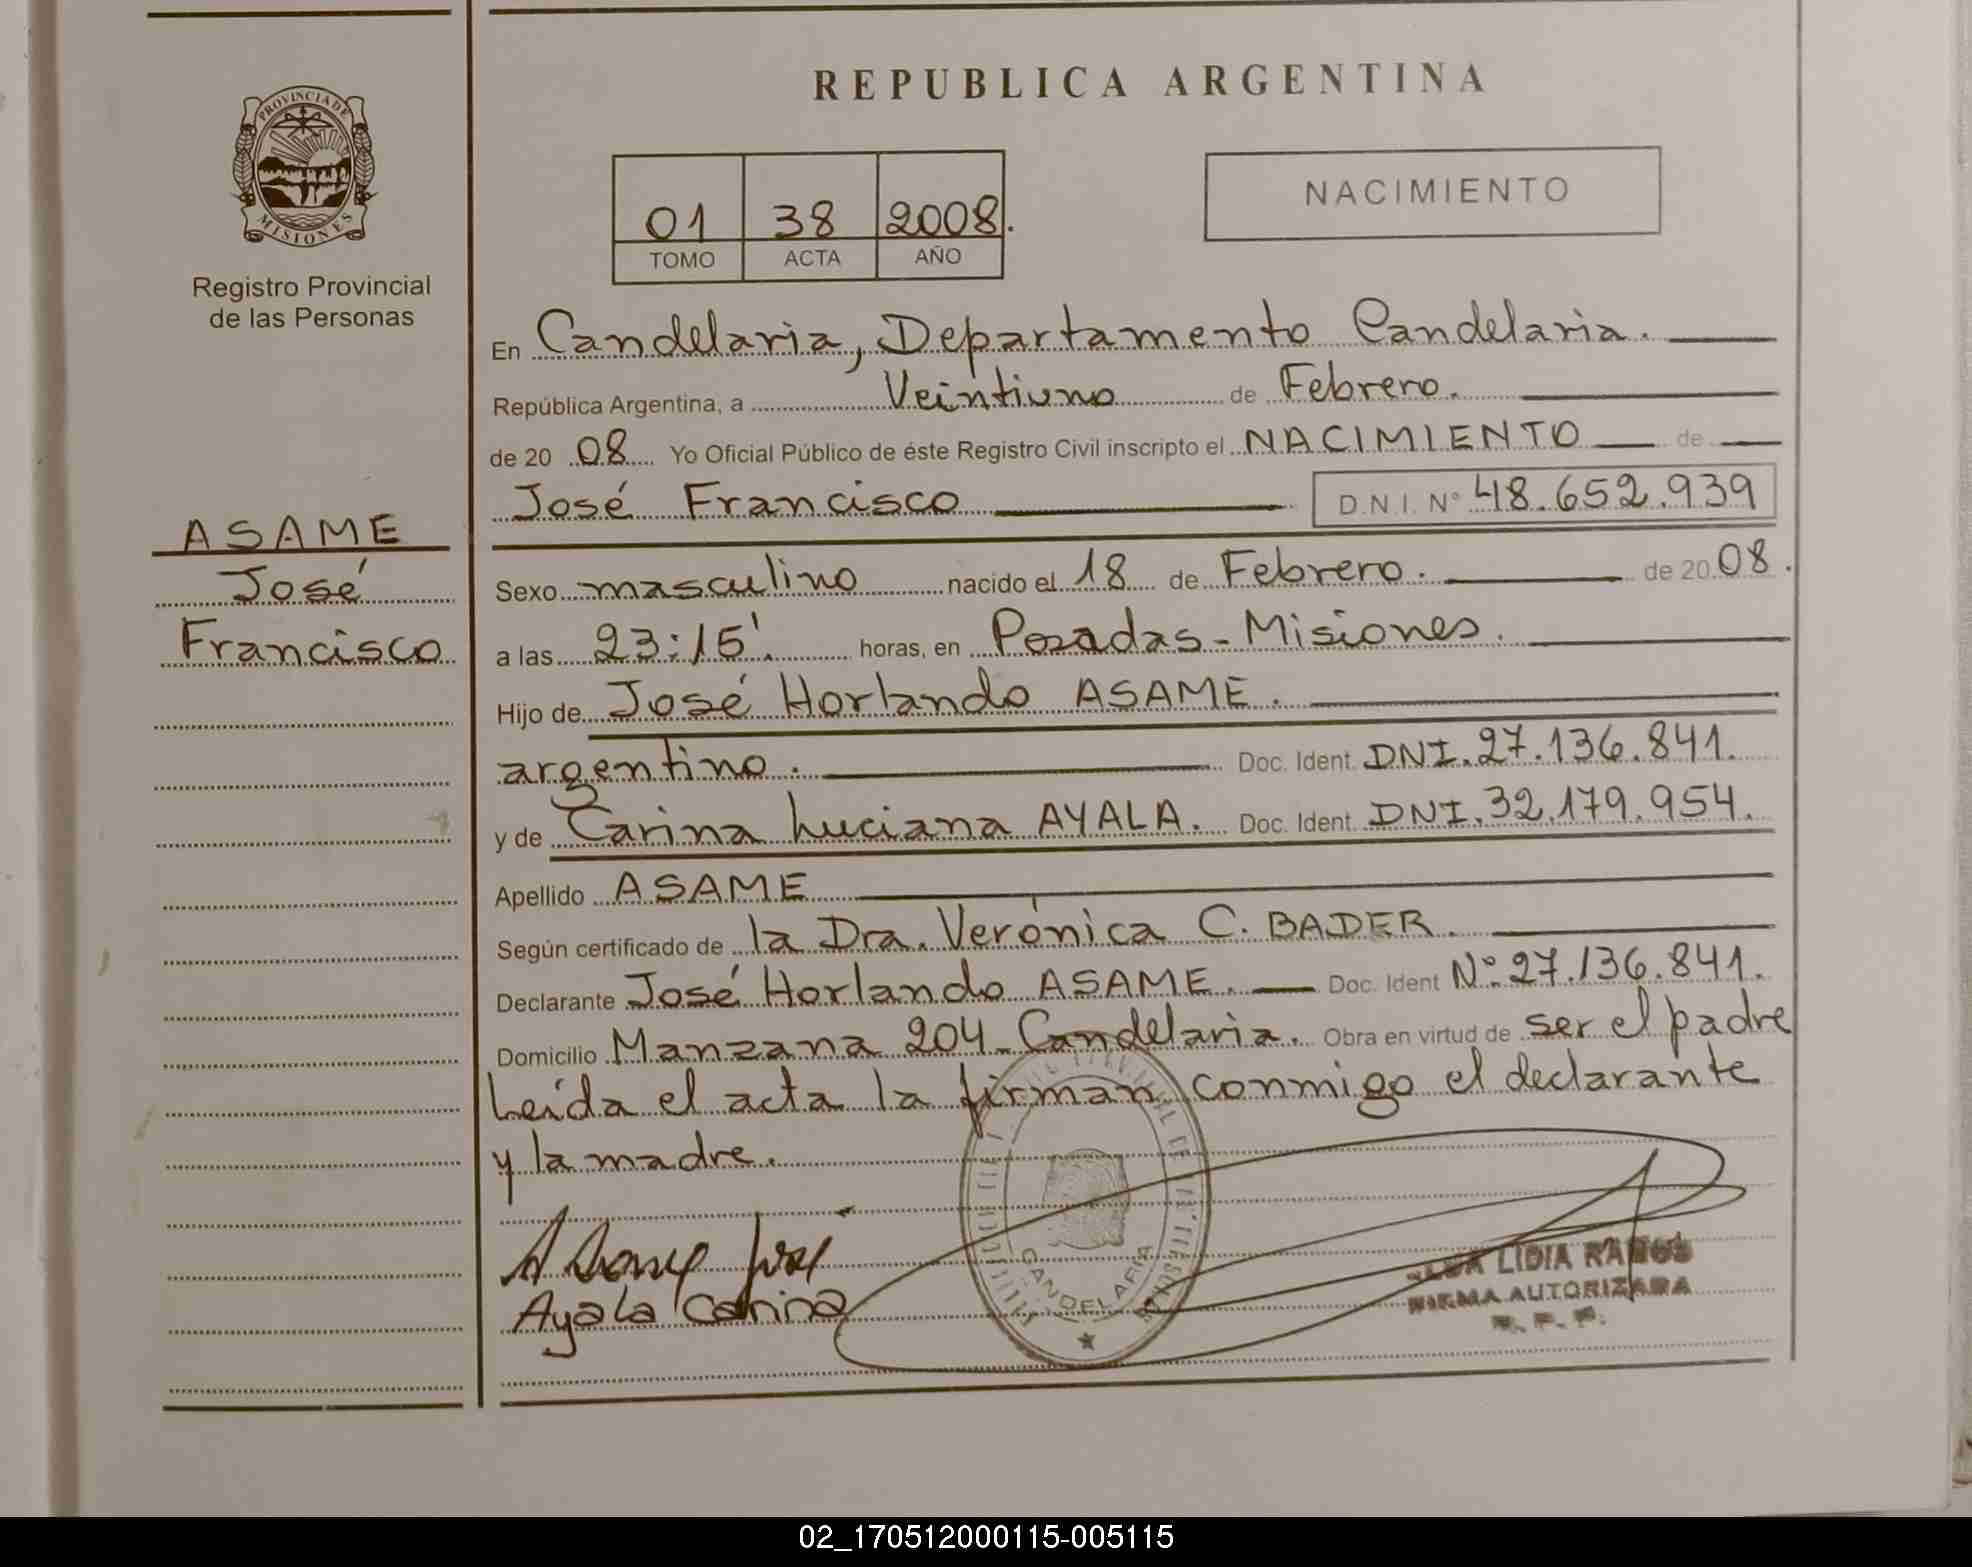 REPUBLICA ARGENTINA
PROVINCIA DE
MISIONES
Registro Provincial
de las Personas
01 38 2008.
TOMO ACTA AÑO
NACIMIENTO
ASAME
José
Francisco
En Candelaria, Departamento Candelaria.
República Argentina, a Veintiuno de Febrero.
de 20 08 Yo Oficial Público de éste Registro Civil inscripto el NACIMIENTO de
José Francisco D.N.I. Nº 48.652.939
Sexo masculino nacido el 18 de Febrero. de 20 08.
a las 23:15'. horas, en Posadas - Misiones.
Hijo de José Horlando ASAME.
argentino. Doc. Ident. DNI. 27.136.841.
y de Carina Luciana AYALA. Doc. Ident. DNI. 32.179.954.
Apellido ASAME
Según certificado de la Dra. Verónica C. BADER.
Declarante José Horlando ASAME. Doc. Ident Nº 27.136.841.
Domicilio Manzana 204 - Candelaria. Obra en virtud de ser el padre
Leída el acta la firman conmigo el declarante
y la madre.
Asame José
Ayala Carina
CANDELARIA
LIDIA RAMOS
FIRMA AUTORIZADA
R. P. P.
02_170512000115-005115